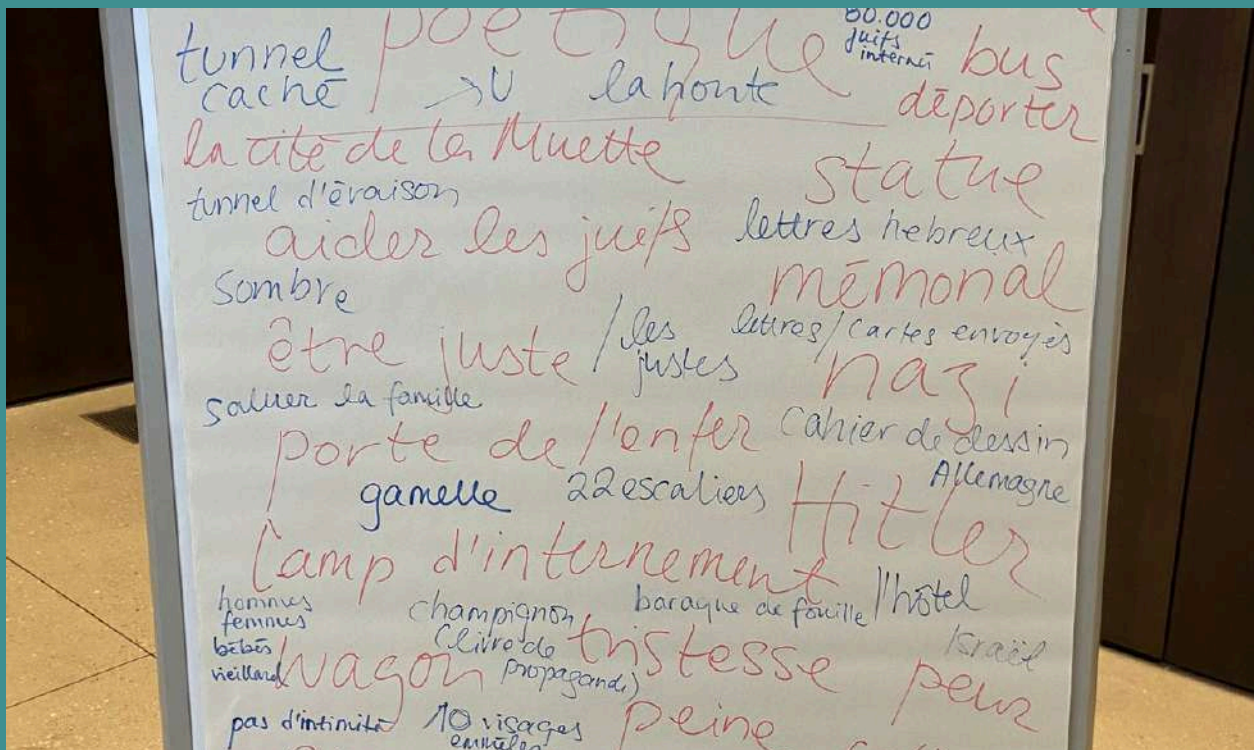 poétique
80.000
juifs
interné
bus
tunnel
caché
→U
la honte
déporter
la cité de la Muette
statue
tunnel d'évaison
aider les juifs
lettres hebreux
sombre
mémorial
être juste / les justes
lettres/cartes envoyés
nazi
saluer la famille
porte de l'enfer
cahier de dessin
gamelle
22 escaliers
Hitler
Allemagne
Camp d'internement
hommes
femmes
bébés
vieillard
champignon
(livre de
propagande)
baraque de fouille
l'hôtel
wagon
tristesse
Israël
peur
pas d'intimité
10 visages
peine